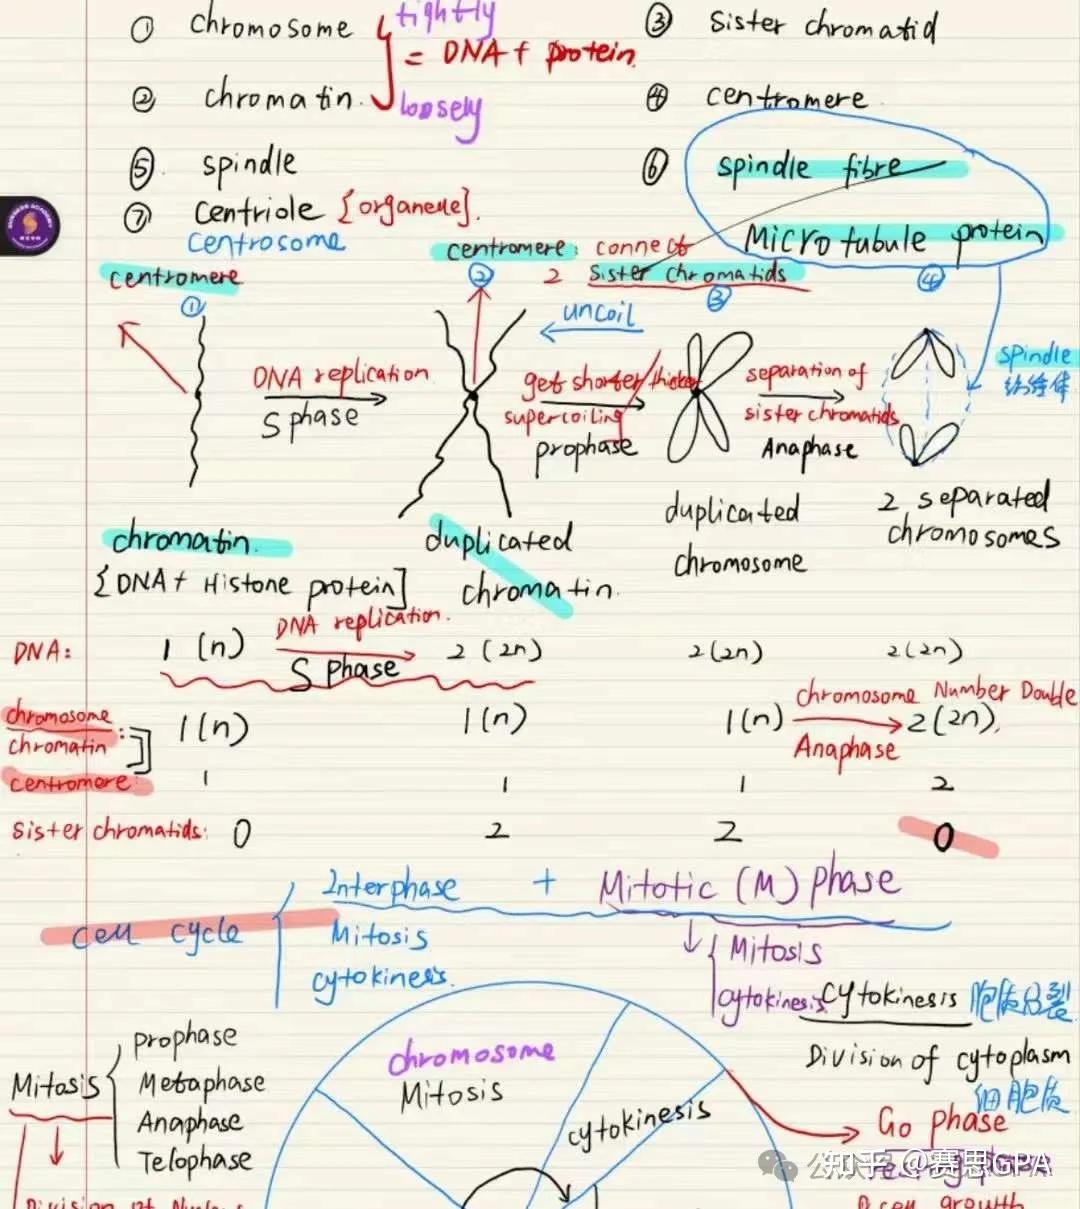 ① chromosome tightly ③ Sister chromatid
= DNA + protein
② chromatin. loosely ④ centromere
⑤ spindle ⑥ spindle fibre
⑦ centriole
centrosome
Microtubule protein
centromere centromere: connect
2 sister chromatids
① ② ③ ④
uncoil
spindle
DNA replication
S phase
get shorter/thicker
supercoiling
prophase
separation of
sister chromatids
Anaphase
chromatin.
{DNA + Histone protein]
duplicated
chromatin.
duplicated
chromosome
2 separated
chromosomes
DNA: 1 (n) DNA replication. S phase 2 (2n) 2 (2n) 2 (2n)
chromosome
chromatin : 1 (n) 1 (n) 1 (n) chromosome Number Double Anaphase 2 (2n),
centromere: 1 1 1 2
Sister chromatids: 0 2 2 0
cell cycle
Interphase + Mitotic (M) phase
Mitosis
cytokinesis.
Mitosis
cytokinesis cytokinesis 胞质分裂
Division of cytoplasm
细胞质
Mitosis
prophase
Metaphase
Anaphase
Telophase
chromosome
Mitosis
cytokinesis
Go phase
知乎 @赛思GPA